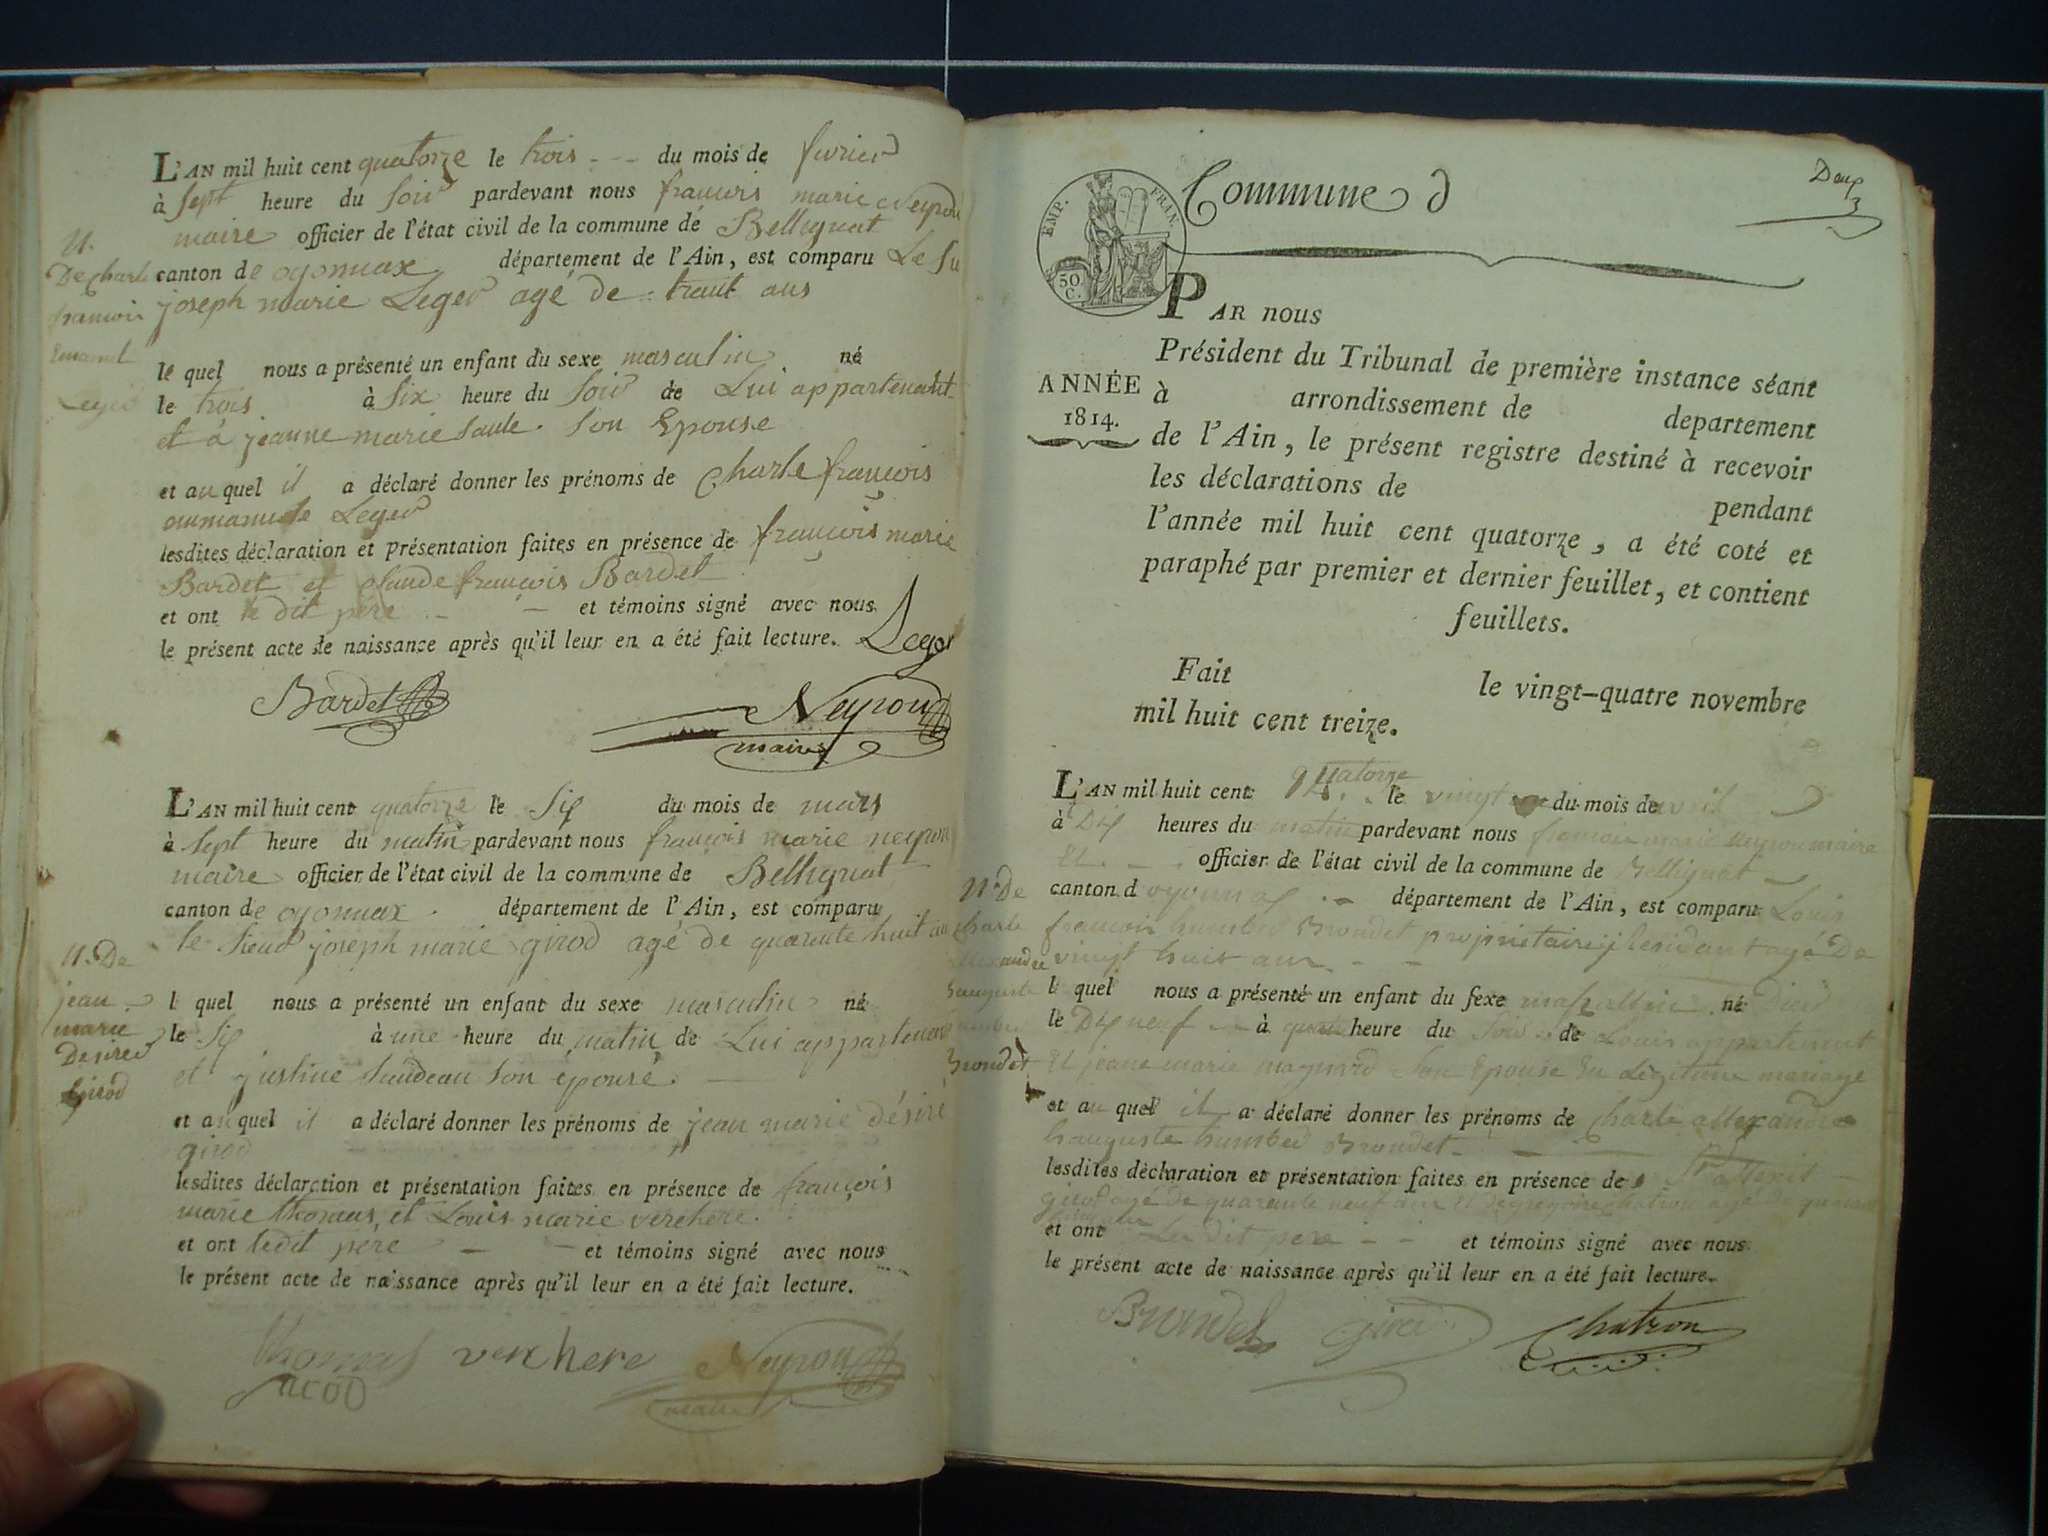 L'AN mil huit cent quatorze le trois du mois de fevrier
à sept heure du soir pardevant nous françois marie Neyron
maire officier de l'état civil de la commune de Bellignat
canton de oyonnax département de l'Ain, est comparu Le Su
joseph marie Leger agé de trant ans
le quel nous a présenté un enfant du sexe masculin né
le trois à six heure du soir de Lui appartenant
et à jeanne marie son Epouse
et au quel il a déclaré donner les prénoms de Charle françois
Leger
lesdites déclaration et présentation faites en présence de françois marie
Bardet et claude françois Bardet
et ont le dit père et témoins signé avec nous
le présent acte de naissance après qu'il leur en a été fait lecture. Leger
Bardet Neyron
maire
N.
De Charle
francois
Emanuel
Leger
L'AN mil huit cent quatorze le Six du mois de mars
à sept heure du matin pardevant nous françois marie neyron
maire officier de l'état civil de la commune de Bellignat
canton de oyonnax département de l'Ain, est comparu
le sieur joseph marie girod agé de quarente huit an
l quel nous a présenté un enfant du sexe masculin né
le Six à une heure du matin de Lui appartenant
et justine son épouse.
et au quel il a déclaré donner les prénoms de jean marie désiré
girod
lesdites déclaration et présentation faites en présence de françois
marie thomas et Louis marie verchere.
et ont ledit père et témoins signé avec nous
le présent acte de naissance après qu'il leur en a été fait lecture.
thomas verchere Neyron
maire
N. De
jean
marie
Desirer
Girod
Deux
Commune d
EMP. FRAN.
50 C.
PAR nous
Président du Tribunal de première instance séant
à arrondissement de departement
de l'Ain, le présent registre destiné à recevoir
les déclarations de pendant
l'année mil huit cent quatorze, a été coté et
paraphé par premier et dernier feuillet, et contient
feuillets.
ANNÉE
1814.
Fait le vingt-quatre novembre
mil huit cent treize.
L'AN mil huit cent quatorze le vingt du mois de avril
à Dix heures du matin pardevant nous francois marie neyron maire
officier de l'état civil de la commune de Bellignat
canton d oyonnax département de l'Ain, est comparu Louis
francois humber Brondet propriétaire y residant agé De
vingt huit ans
l quel nous a présenté un enfant du sexe né
le Dix neuf à heure du soir de Louis appartenent
Et jeane marie son Epouse En Légitime mariage
et au quel il a déclaré donner les prénoms de charle allexandre
hauguste humber Brondet
lesdites déclaration et présentation faites en présence de
girod agé de quarente neuf ans
et ont Le dit pere et témoins signé avec nous
le présent acte de naissance après qu'il leur en a été fait lecture.
Brondet girod Chatron
N. De
charle
allexandre
hauguste
humber
Brondet